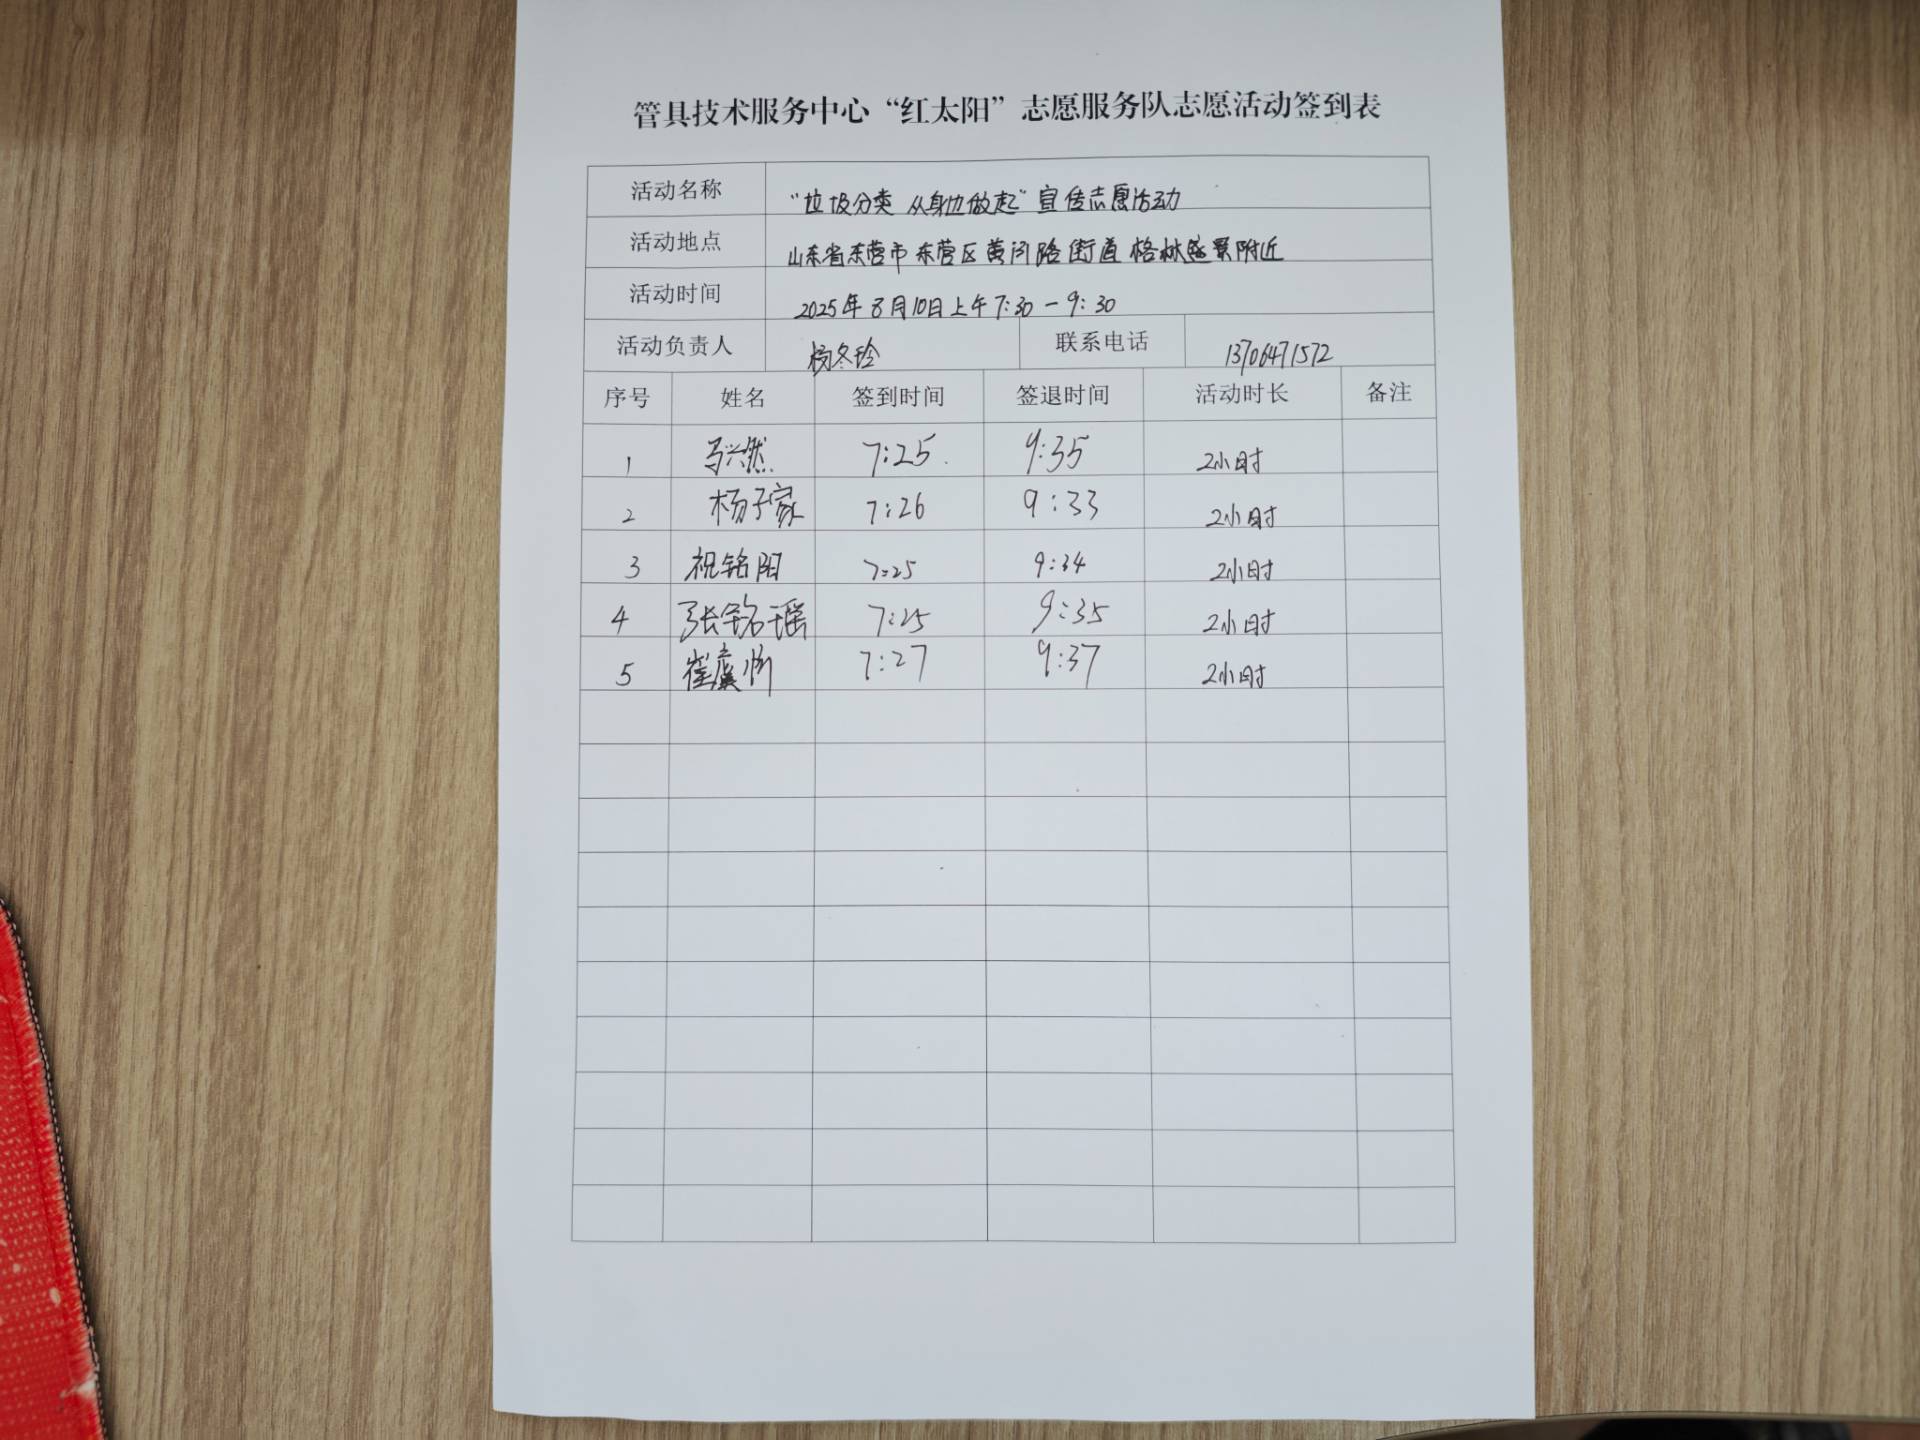 管具技术服务中心“红太阳”志愿服务队志愿活动签到表
活动名称 “垃圾分类 从身边做起”宣传志愿活动
活动地点 山东省东营市东营区黄河路街道格林盛景附近
活动时间 2025年8月10日上午7:30-9:30
活动负责人 杨冬玲 联系电话 13706471572
序号 姓名 签到时间 签退时间 活动时长 备注
1 马兴然 7:25 9:35 2小时
2 杨子家 7:26 9:33 2小时
3 祝铭阳 7:25 9:34 2小时
4 张铭瑶 7:25 9:35 2小时
5 崔 7:27 9:37 2小时